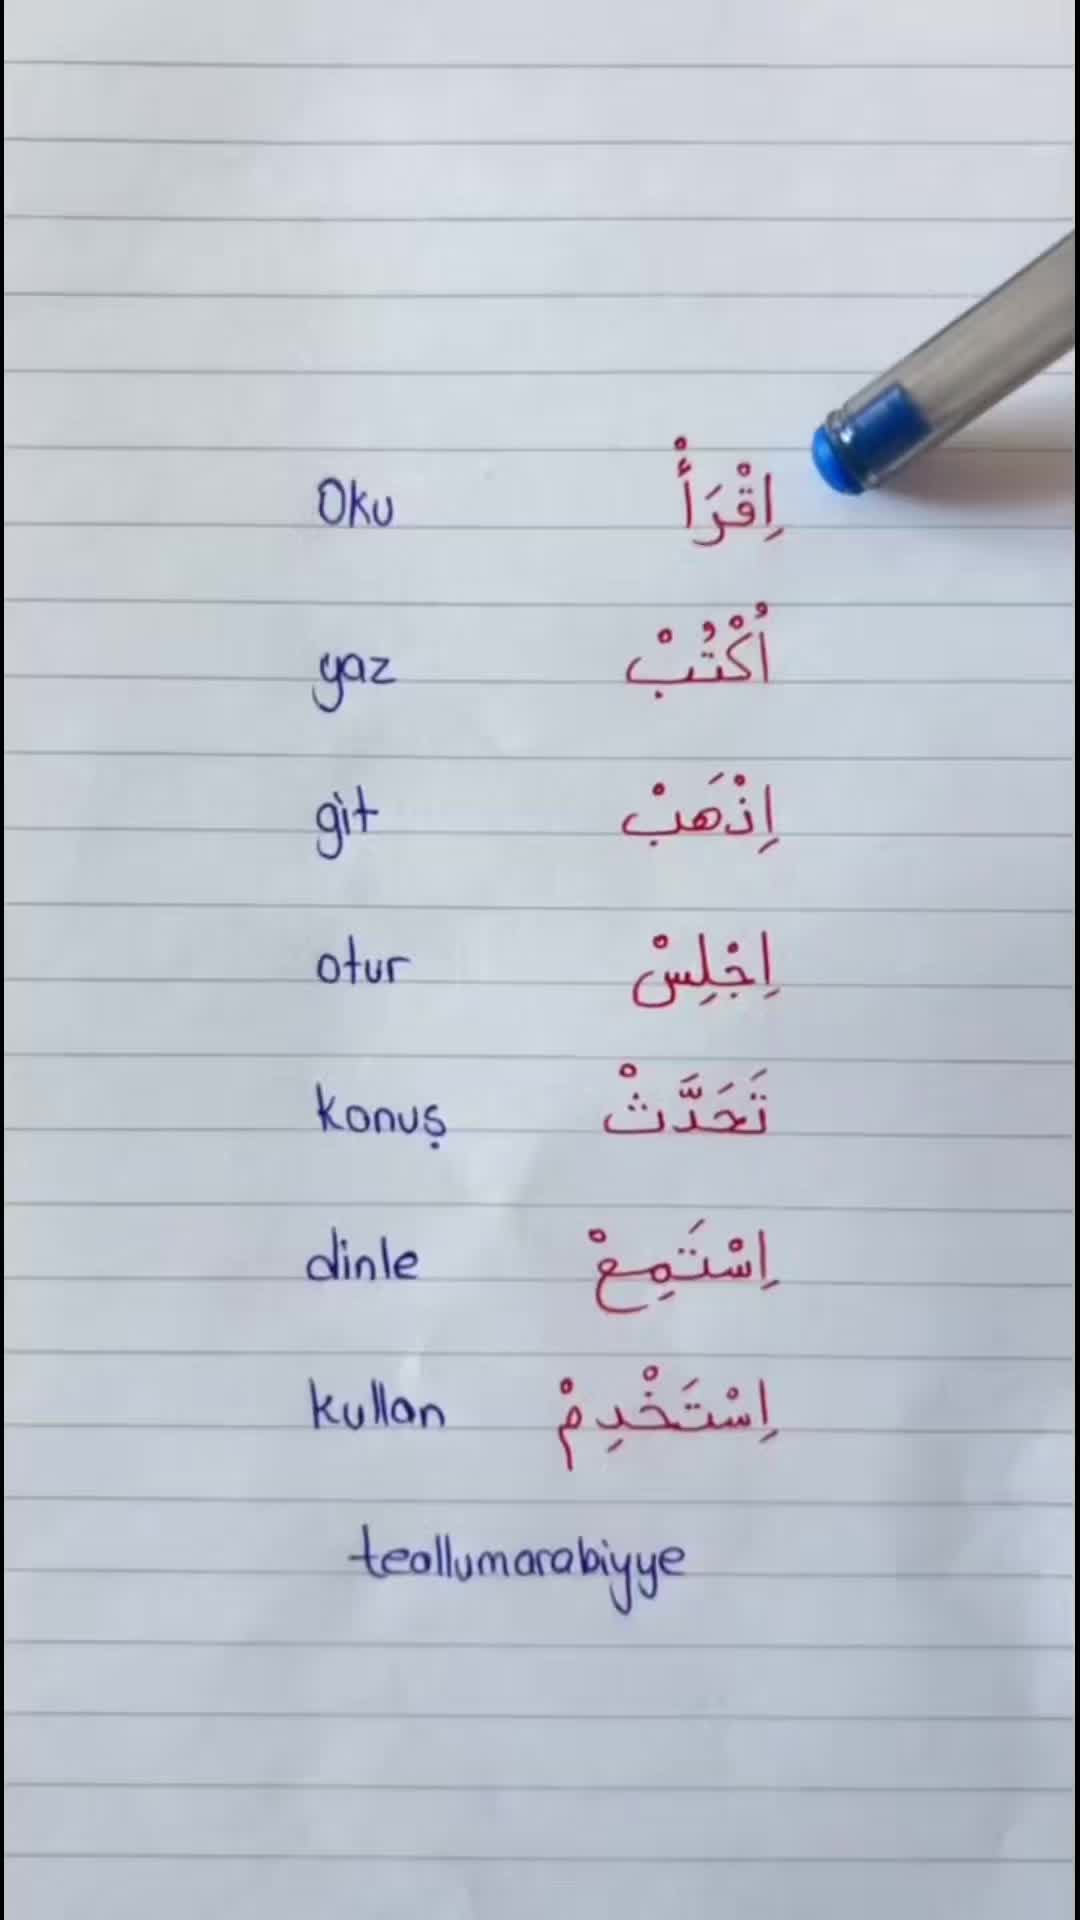 Oku اِقْرَأْ
yaz اُكْتُبْ
git اِذْهَبْ
otur اِجْلِسْ
konuş تَحَدَّثْ
dinle اِسْتَمِعْ
kullan اِسْتَخْدِمْ
teallumarabiyye